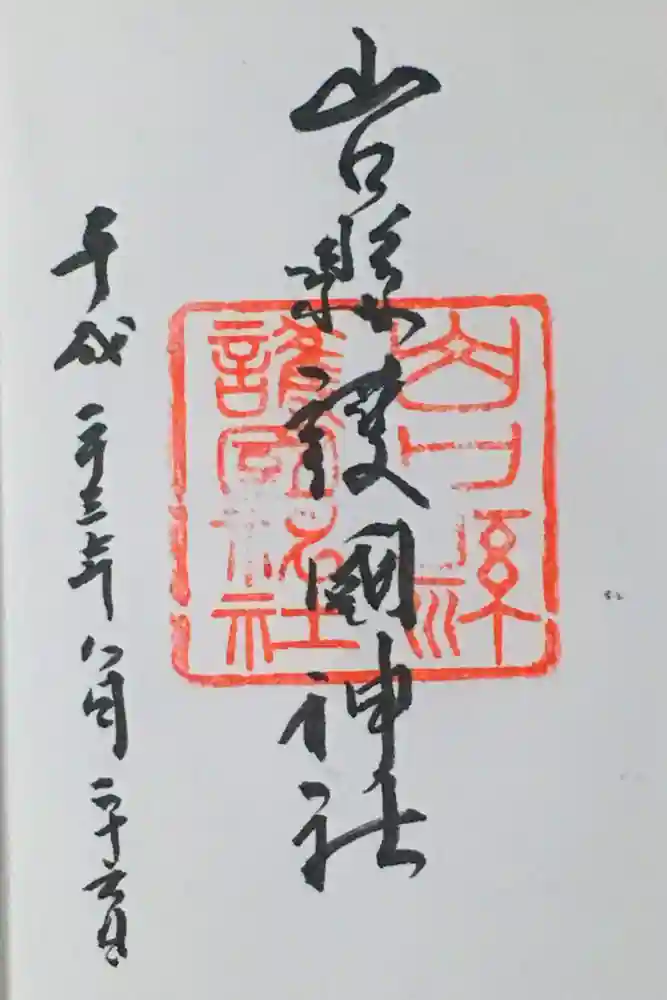 山口縣護國神社
山口縣
護國神社
平成二十三年八月二十六日